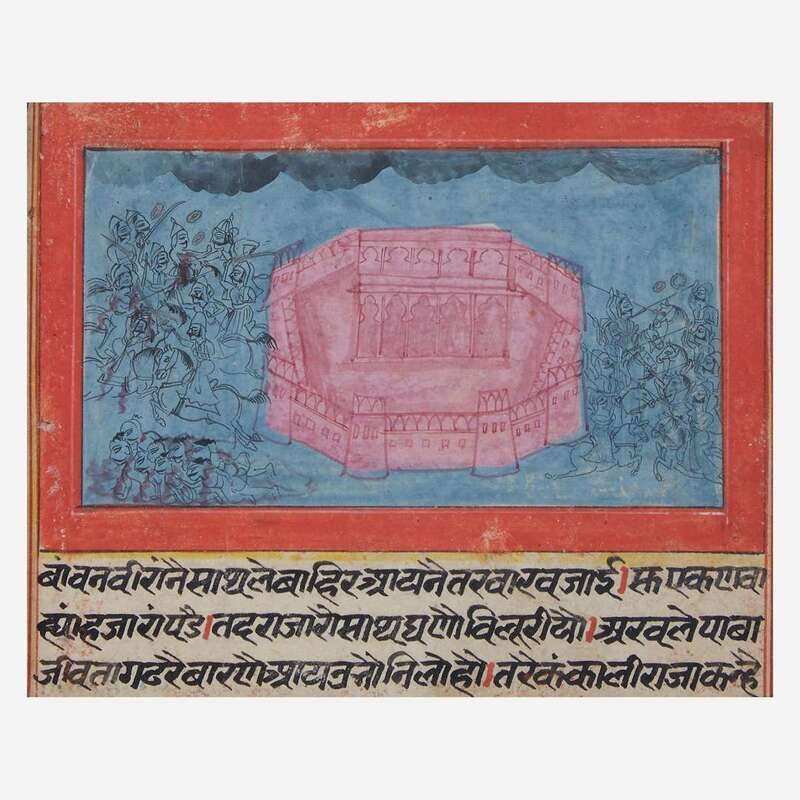 बांवनवीरांनैसाथलेबाहिरआयनैतरवारवजाई।रूकएकणवा
ह्यांहजारांपडै।तदराजारौसाथघणौविलूरीयौ।अरवलेपाबा
जीवतागढरैबारणैआयऊभौनिलोहौ।तरेकंकालीराजाकन्है